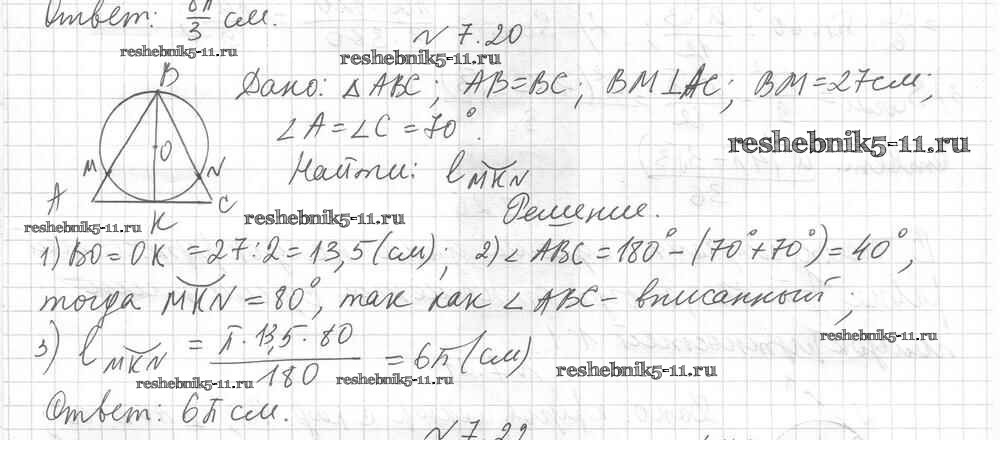 Ответ: 8π/3 см.
reshebnik5-11.ru
№ 7.20
reshebnik5-11.ru
B
O
M
N
A
C
K
Дано: △ABC; AB=BC; BM⊥AC; BM=27см;
∠A=∠C=70°.
reshebnik5-11.ru
Найти: l MKN
reshebnik5-11.ru
reshebnik5-11.ru
Решение.
1) BO=OK=27:2=13,5(см); 2) ∠ABC=180°-(70°+70°)=40°,
тогда MKN=80°, так как ∠ABC- вписанный;
reshebnik5-11.ru
3) l MKN = π·13,5·80/180 = 6π(см)
reshebnik5-11.ru
reshebnik5-11.ru
reshebnik5-11.ru
Ответ: 6π см.
№ 7.22